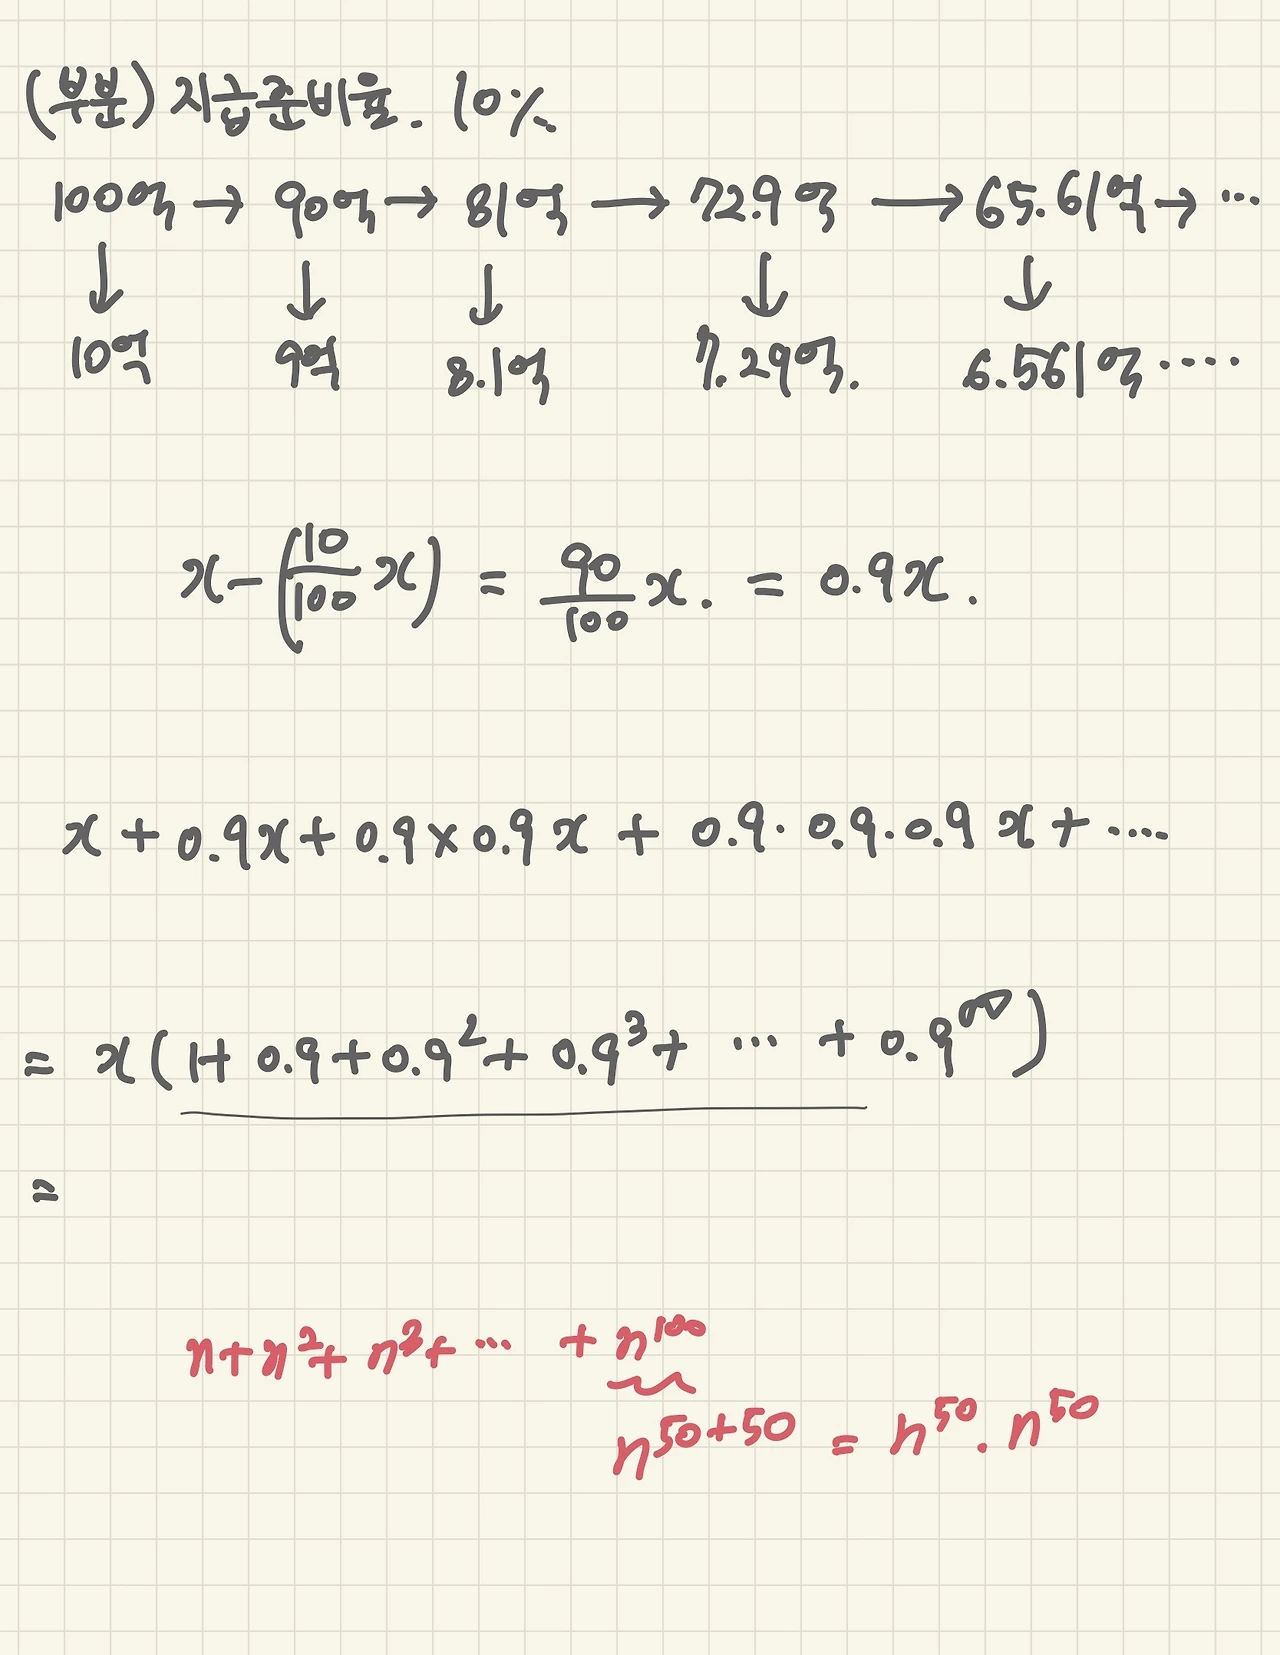 (부분) 지급준비율. 10%
100억 → 90억 → 81억 → 72.9억 → 65.61억 → ...
↓ ↓ ↓ ↓ ↓
10억 9억 8.1억 7.29억. 6.561억 ....
x - (10/100 x) = 90/100 x. = 0.9x.
x + 0.9x + 0.9 × 0.9x + 0.9 · 0.9 · 0.9 x + ....
= x(1 + 0.9 + 0.9² + 0.9³ + ... + 0.9^∞)
=
n + n² + n³ + ... + n¹⁰⁰
n⁵⁰⁺⁵⁰ = n⁵⁰ . n⁵⁰